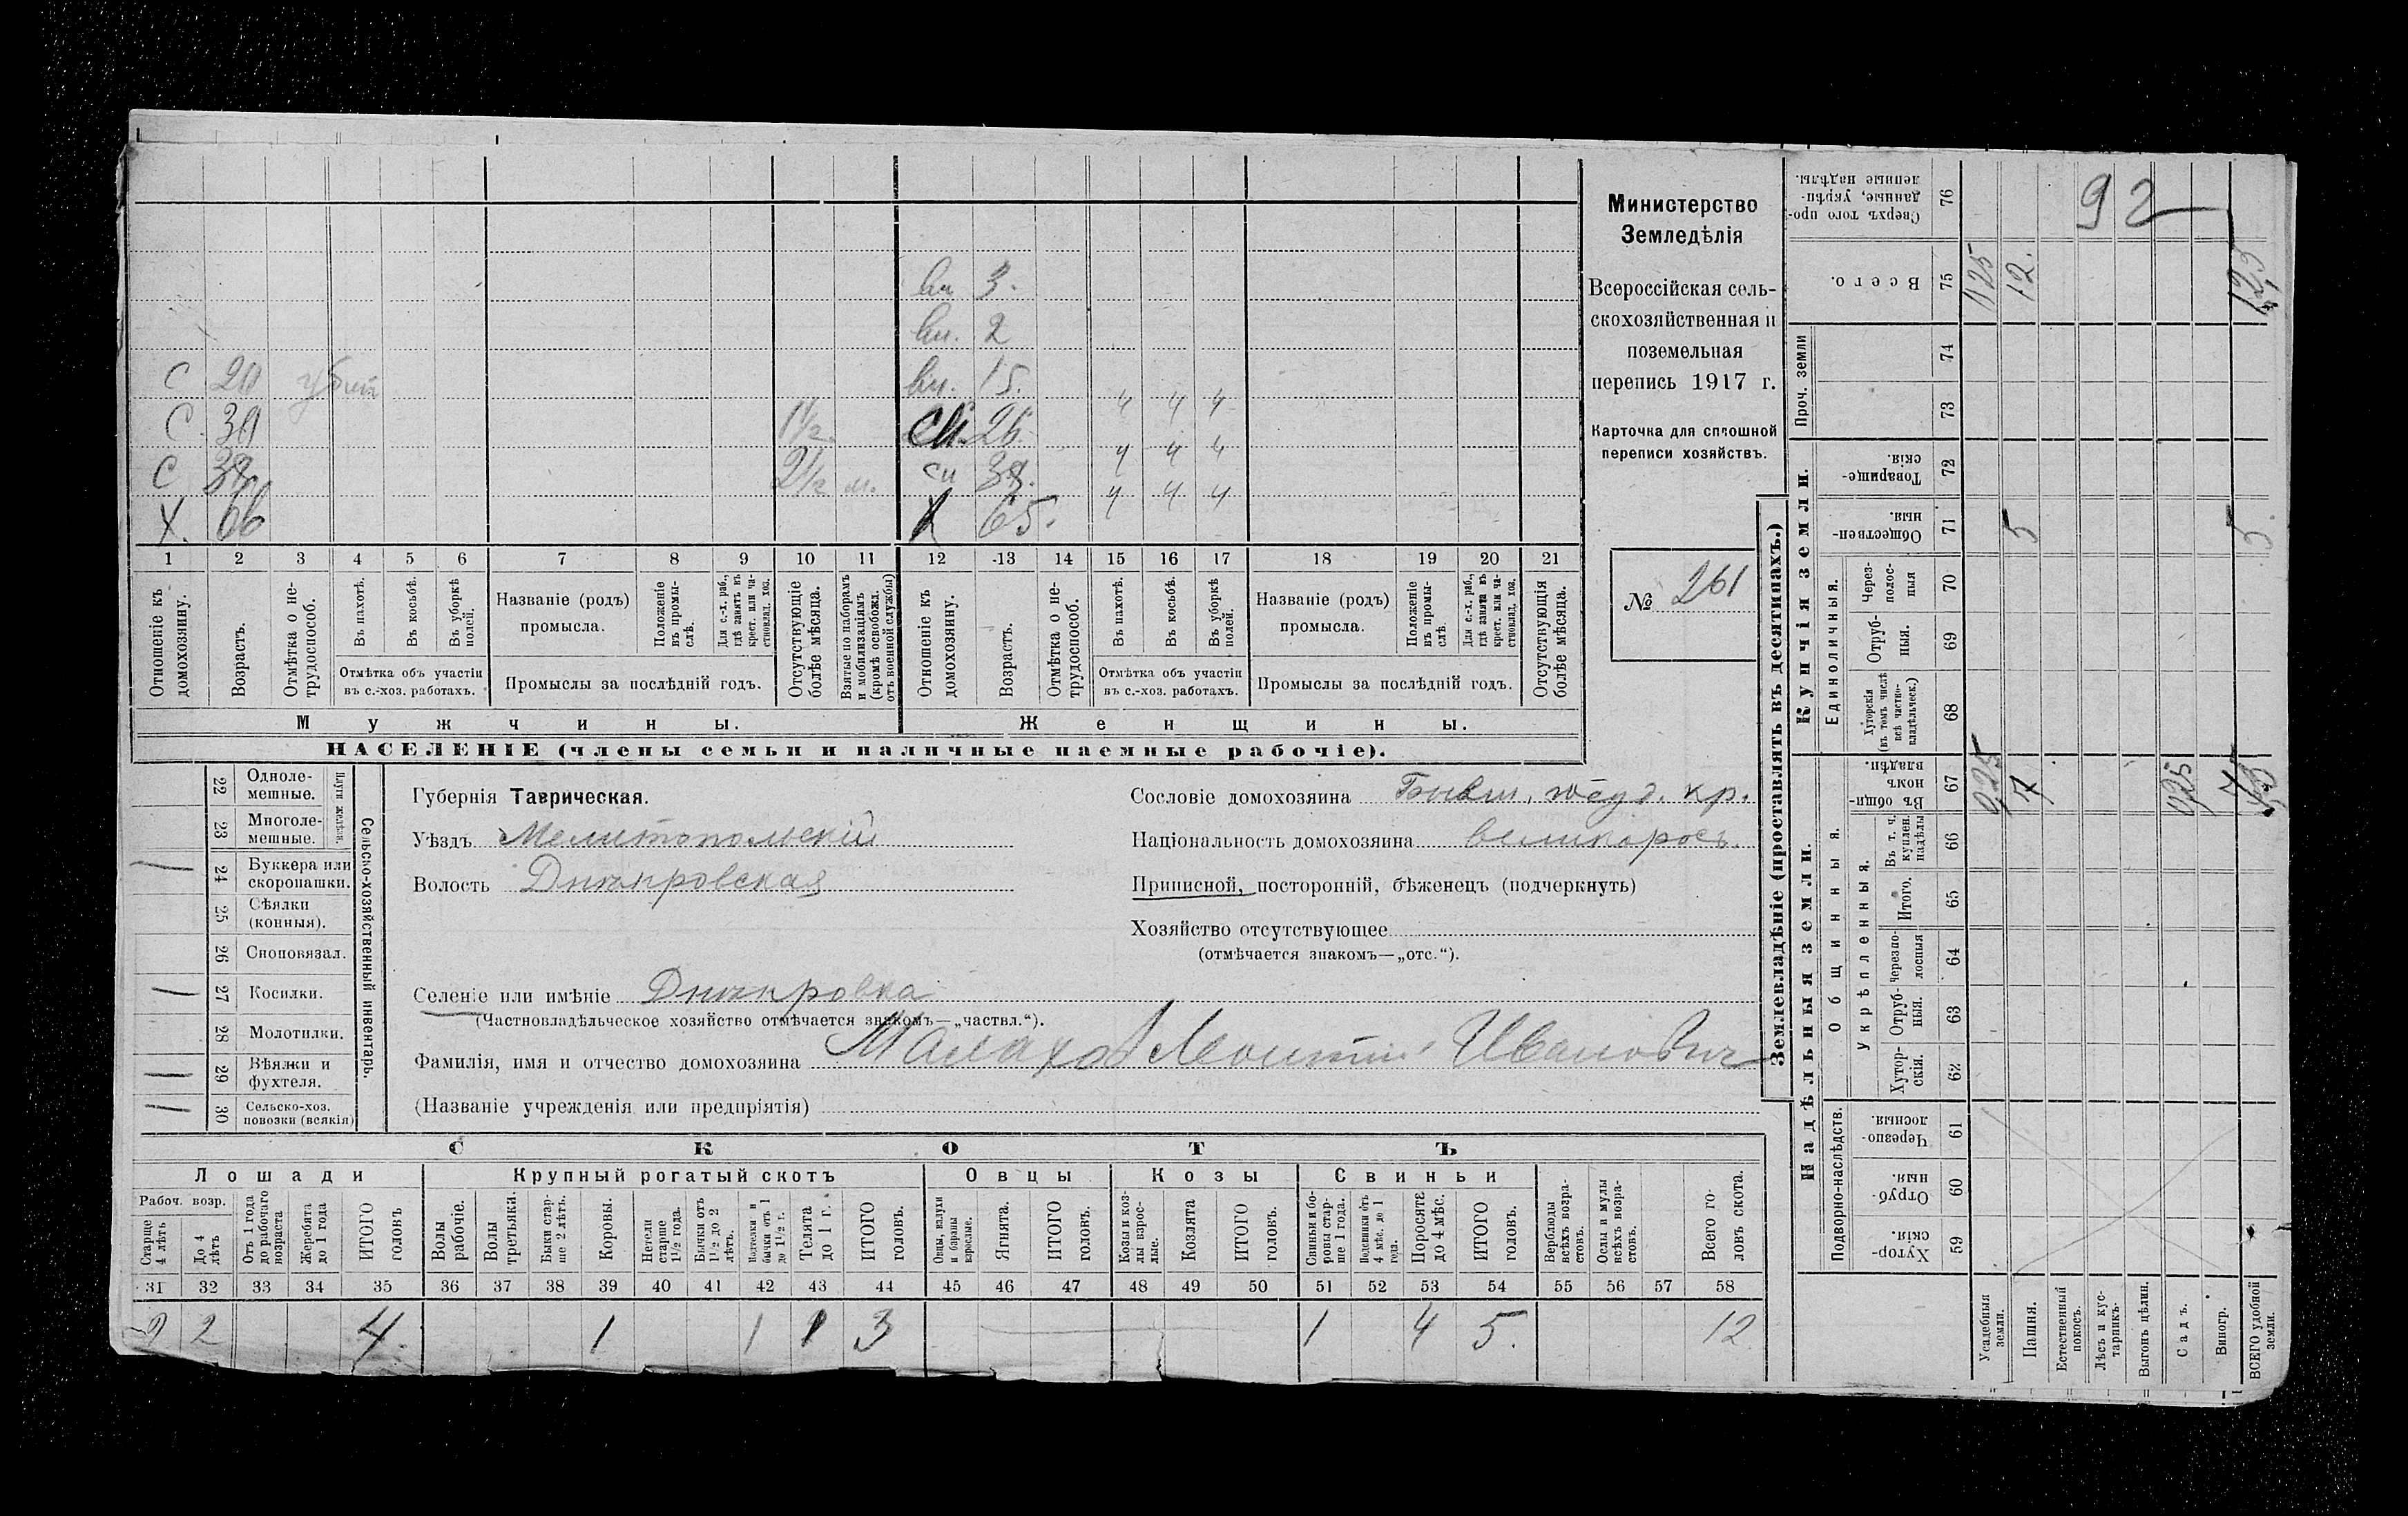 вн 3.
вн. 2
С 20 убит вн. 15.
С 30 1½ сн. 26 ч ч ч
С 2½ м. сн ч ч ч
Х. 66 Х 65. ч ч ч
1 2 3 4 5 6 7 8 9 10 11 12 13 14 15 16 17 18 19 20 21
Отношеніе къ домохозяину.
Возрастъ.
Отмѣтка о не-
трудоспособ.
Въ пахотѣ.
Въ косьбѣ.
Въ уборкѣ полей.
Отмѣтка объ участіи
въ с.-хоз. работахъ.
Названіе (родъ)
промысла.
Положеніе въ промы-
слѣ.
Для с.-х. раб.,
гдѣ занятъ въ
крест. или ча-
стновлад. хоз.
Промыслы за послѣдній годъ.
Отсутствующіе
болѣе мѣсяца.
Взятые по наборамъ
и мобилизаціямъ
(кромѣ освобожд.
отъ военной службы)
Отношеніе къ
домохозяину.
Возрастъ.
Отмѣтка о не-
трудоспособ.
Въ пахотѣ.
Въ косьбѣ.
Въ уборкѣ
полей.
Отмѣтка объ участіи
въ с.-хоз. работахъ.
Названіе (родъ)
промысла.
Положеніе
въ промы-
слѣ.
Для с.-х. раб.,
гдѣ занята въ
крест. или ча-
стновлад. хоз.
Промыслы за послѣдній годъ.
Отсутствующія
болѣе мѣсяца.
Мужчины.
Женщины.
НАСЕЛЕНІЕ (члены семьи и наличные наемные рабочіе).
Министерство
Земледѣлія
Всероссійская сель-
скохозяйственная и
поземельная
перепись 1917 г.
Карточка для сплошной
переписи хозяйствъ.
№ 261
Сельско-хозяйственный инвентарь.
Плуги желѣзн.
22 Одноле-
мешные.
23 Многоле-
мешные.
24 Буккера или
скоропашки.
25 Сѣялки
(конныя).
26 Сноповязал.
27 Косилки.
28 Молотилки.
29 Вѣялки и
фухтеля.
30 Сельско-хоз.
повозки (всякія)
Губернія Таврическая.
Уѣздъ Мелитопольскій
Волость Днѣпровская
Селеніе или имѣніе Днѣпровка
(Частновладѣльческое хозяйство отмѣчается знакомъ—„частвл.“).
Фамилія, имя и отчество домохозяина Малахов Леонтій Иванович
(Названіе учрежденія или предпріятія)
Сословіе домохозяина Бывш. госуд. кр.
Національность домохозяина великоросъ.
Приписной, посторонній, бѣженецъ (подчеркнуть)
Хозяйство отсутствующее
(отмѣчается знакомъ—„отс.“).
СКОТЪ
Лошади
Крупный рогатый скотъ
Овцы
Козы
Свиньи
Рабоч. возр.
Старше
4 лѣтъ
До 4
лѣтъ
Отъ 1 года
до рабочаго
возраста
Жеребята
до 1 года
ИТОГО
головъ
Волы
рабочіе.
Волы
третьяки.
Быки стар-
ше 2 лѣтъ.
Коровы.
Нетели
старше
1½ года.
Бычки отъ
1½ до 2
лѣтъ.
бычки отъ 1
до 1½ г.
Телята
до 1 г.
ИТОГО
головъ.
Овцы, валухи
и бараны
взрослые.
Ягнята.
ИТОГО
головъ.
Козы и коз-
лы взрос-
лые.
Козлята
ИТОГО
головъ.
Свиньи и бо-
ровы стар-
ше 1 года.
Подсвинки отъ
4 мѣс. до 1
года.
Поросятѣ
до 4 мѣс.
ИТОГО
головъ.
Верблюды
всѣхъ возра-
стовъ.
Ослы и мулы
всѣхъ возра-
стовъ.
Всего го-
ловъ скота.
31 32 33 34 35 36 37 38 39 40 41 42 43 44 45 46 47 48 49 50 51 52 53 54 55 56 57 58
2 2 4. 1 1 1 3 1 4 5. 12
Землевладѣніе (проставлять въ десятинахъ.)
Сверхъ того про-
данные, укрѣп-
ленные надѣлы. 76 92
Всего. 75 025 12.
Проч. земли
74
73
Купчія земли.
Товарище-
скія. 72
Обществен-
ныя. 71 5 5.
Единоличныя.
Через-
полос-
ныя 70
Отруб-
ныя. 69
Хуторскія
(въ томъ числѣ
всѣ частно-
владѣльческ.) 68
Надѣльныя земли.
Общинныя.
Въ общи-
номъ
владѣн. 67 0,25 7 0,25
Укрѣпленныя.
Въ т. ч.
куплен.
надѣлы 66
Итого. 65
Черезпо-
лосныя 64
Отруб-
ныя. 63
Хутор-
скія. 62
Подворно-наслѣдств.
Черезпо-
лосныя. 61
Отруб-
ныя. 60
Хутор-
скія. 59
Усадебныя
земли.
Пашня.
Естественный
покосъ.
Лѣсъ и кус-
тарникъ.
Выгонъ цѣлин.
Садъ.
Виногр.
ВСЕГО удобной
земли.